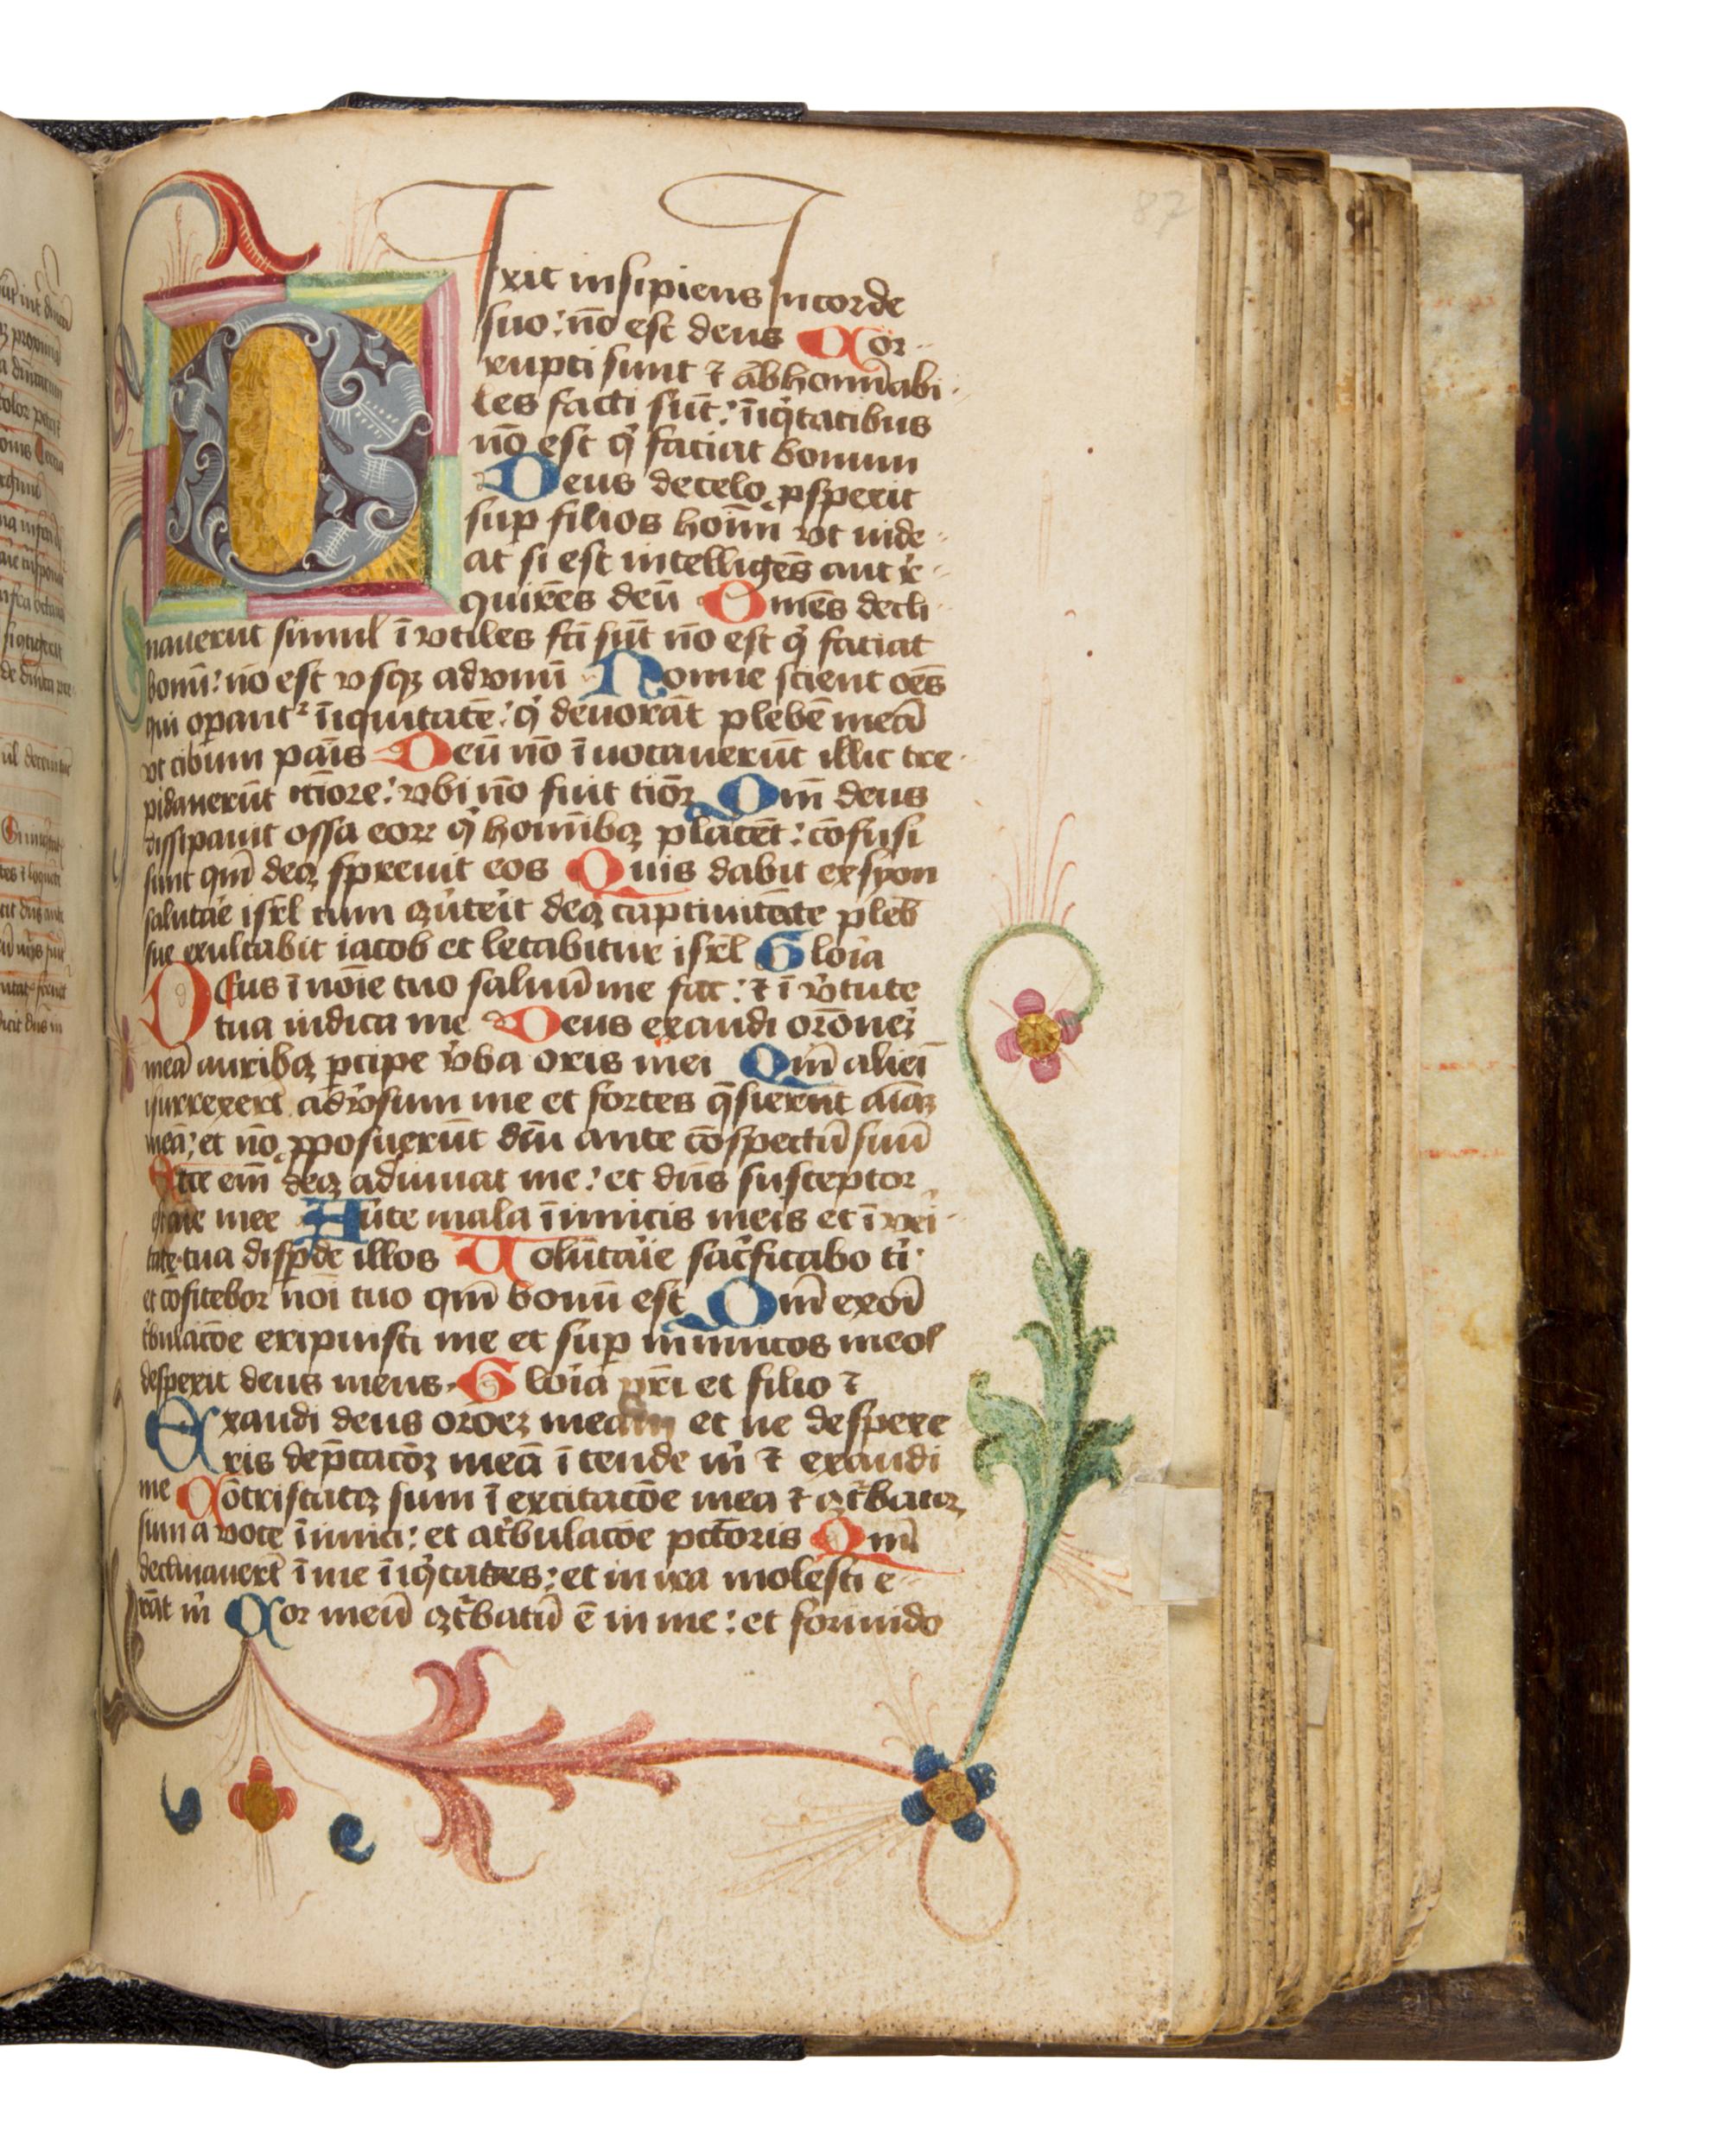 87
Dixit insipiens in corde
suo: nō est deus Cor
rupti sunt ⁊ abhominabi
les facti sūt: ī iqͥtatibus
nō est qͥ faciat bonum
Deus de celo ꝓspexit
suꝑ filios hoīm̄ vt uide
at si est intelligēs aut re
quirēs deū Omēs decli
nauerūt simul ī vtiles fc̄i sūt nō est qͥ faciat
bonū: nō est vsqꝫ ad vnū Nonne scient oēs
qui operant᷑ īiquitatē: qͥ deuorāt plebē meā
vt cibum panis Deū nō īuocauerūt illic tre
pidauerūt timore: vbi nō fuit timor Qm̄ deus
dissipauit ossa eoꝝ qͥ hominibꝫ placēt: cōfusi
sunt qm̄ deꝰ spreuit eos Quis dabit ex syon
salutare isrl̄ cum ꝯuͤterit deꝰ captiuitate pleb̄
sue exultabit iacob et letabitur isrl̄ Gloīa
Deus ī noīe tuo saluū me fac: ⁊ ī vͥtute
tua iudica me Deus exaudi oronēꝫ
meā auribꝫ ꝑcipe vͤba oris mei Qm̄ alieī
īsurrexerūt aduͤsum me et fortes q̄sierūt aīaꝫ
meā: et nō ꝓposuerūt dm̄ ante cōspectū suū
Ecce em̄ deꝰ adiuuat me: et dn̄s susceptor
aīe mee Auͤte mala īimicis meis et ī vei
tate tua dispͤde illos Uolūtarie sacͥficabo tͥ
et cōfitebor noī tuo qm̄ bonū est Qm̄ ex oī
tͥbulacōe eripuisti me et suꝑ īimicos meos
despexit deus meus Gloīa pr̄i et filio ⁊
Exaudi deus oroēꝫ meam et ne despexe
ris dep̄cacōꝫ meā ītende mͥ ⁊ exaudi
me Cōtristatꝰ sum ī exͤcitacōe mea ⁊ ꝯtͧbatꝰ
sum a voce īimici: et a tͥbulacōe pctōris Qm̄
declinauerūt ī me īiqͥtates: et in ira molesti e
rāt mͥ Cor meū ꝯtͧbatū ē in me: et formido